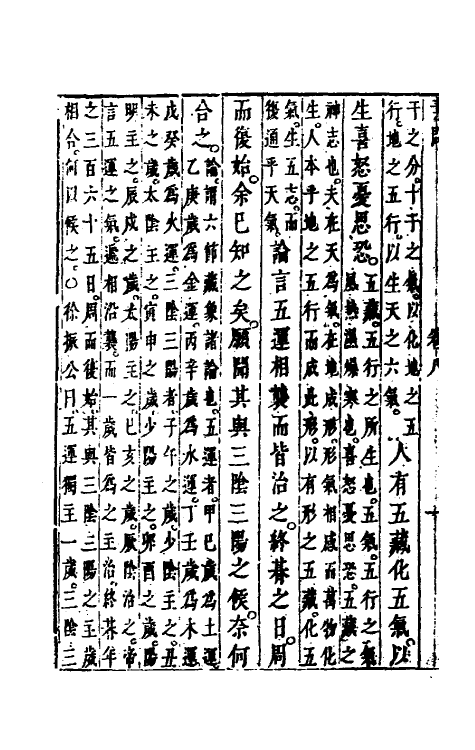 干之分十干之氣以化地之五
行地之五行以生天之六氣人有五藏化五氣以
生喜怒憂思恐五藏五行之所生也五氣五行之氣
風熱濕燥寒也喜怒憂思恐五藏之
神志也夫在天為氣在地成形形氣相感而萬物化
生人本乎地之五行而成此形以有形之五藏化五
氣生五志而
後通乎天氣論言五運相襲而皆治之終朞之日周
而後始余已知之矣願聞其與三陰三陽之候奈何
合之論謂六節藏象諸論也五運者甲己歲為土運
乙庚歲為金運丙辛歲為水運丁壬歲為木運
戊癸歲為火運三陰三陽者子午之歲少陰主之丑
未之歲太陰主之寅申之歲少陽主之卯酉之歲陽
明主之辰戌之歲太陽主之巳亥之歲厥陰治之帝
言五運之氣遞相沿襲而一歲皆為之主治終朞年
之三百六十五日周而復始其與三陰三陽之主歲
相合何以候之○徐振公曰五運獨主一歲三陰三
卷八
十